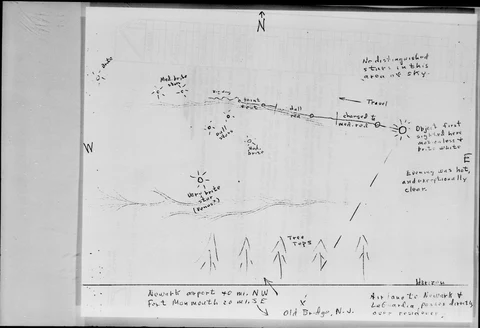 N
No distinguished
stars in this
area of sky.
Brite
Med. brite
star
zig zag
& point
out
dull
red
Travel
changed to
med. red
Object first
sighted here
motionless &
brite white
dull
stars
med.
brite
W
E
Evening was hot,
and exceptionally
clear.
Very brite
star
(Venus?)
Tree
Tops
Horizon
Newark airport 40 mi. NW
Fort Monmouth 20 mi. SE
X
Old Bridge, N.J.
Air lane to Newark &
LaGuardia, passes directly
over residence.